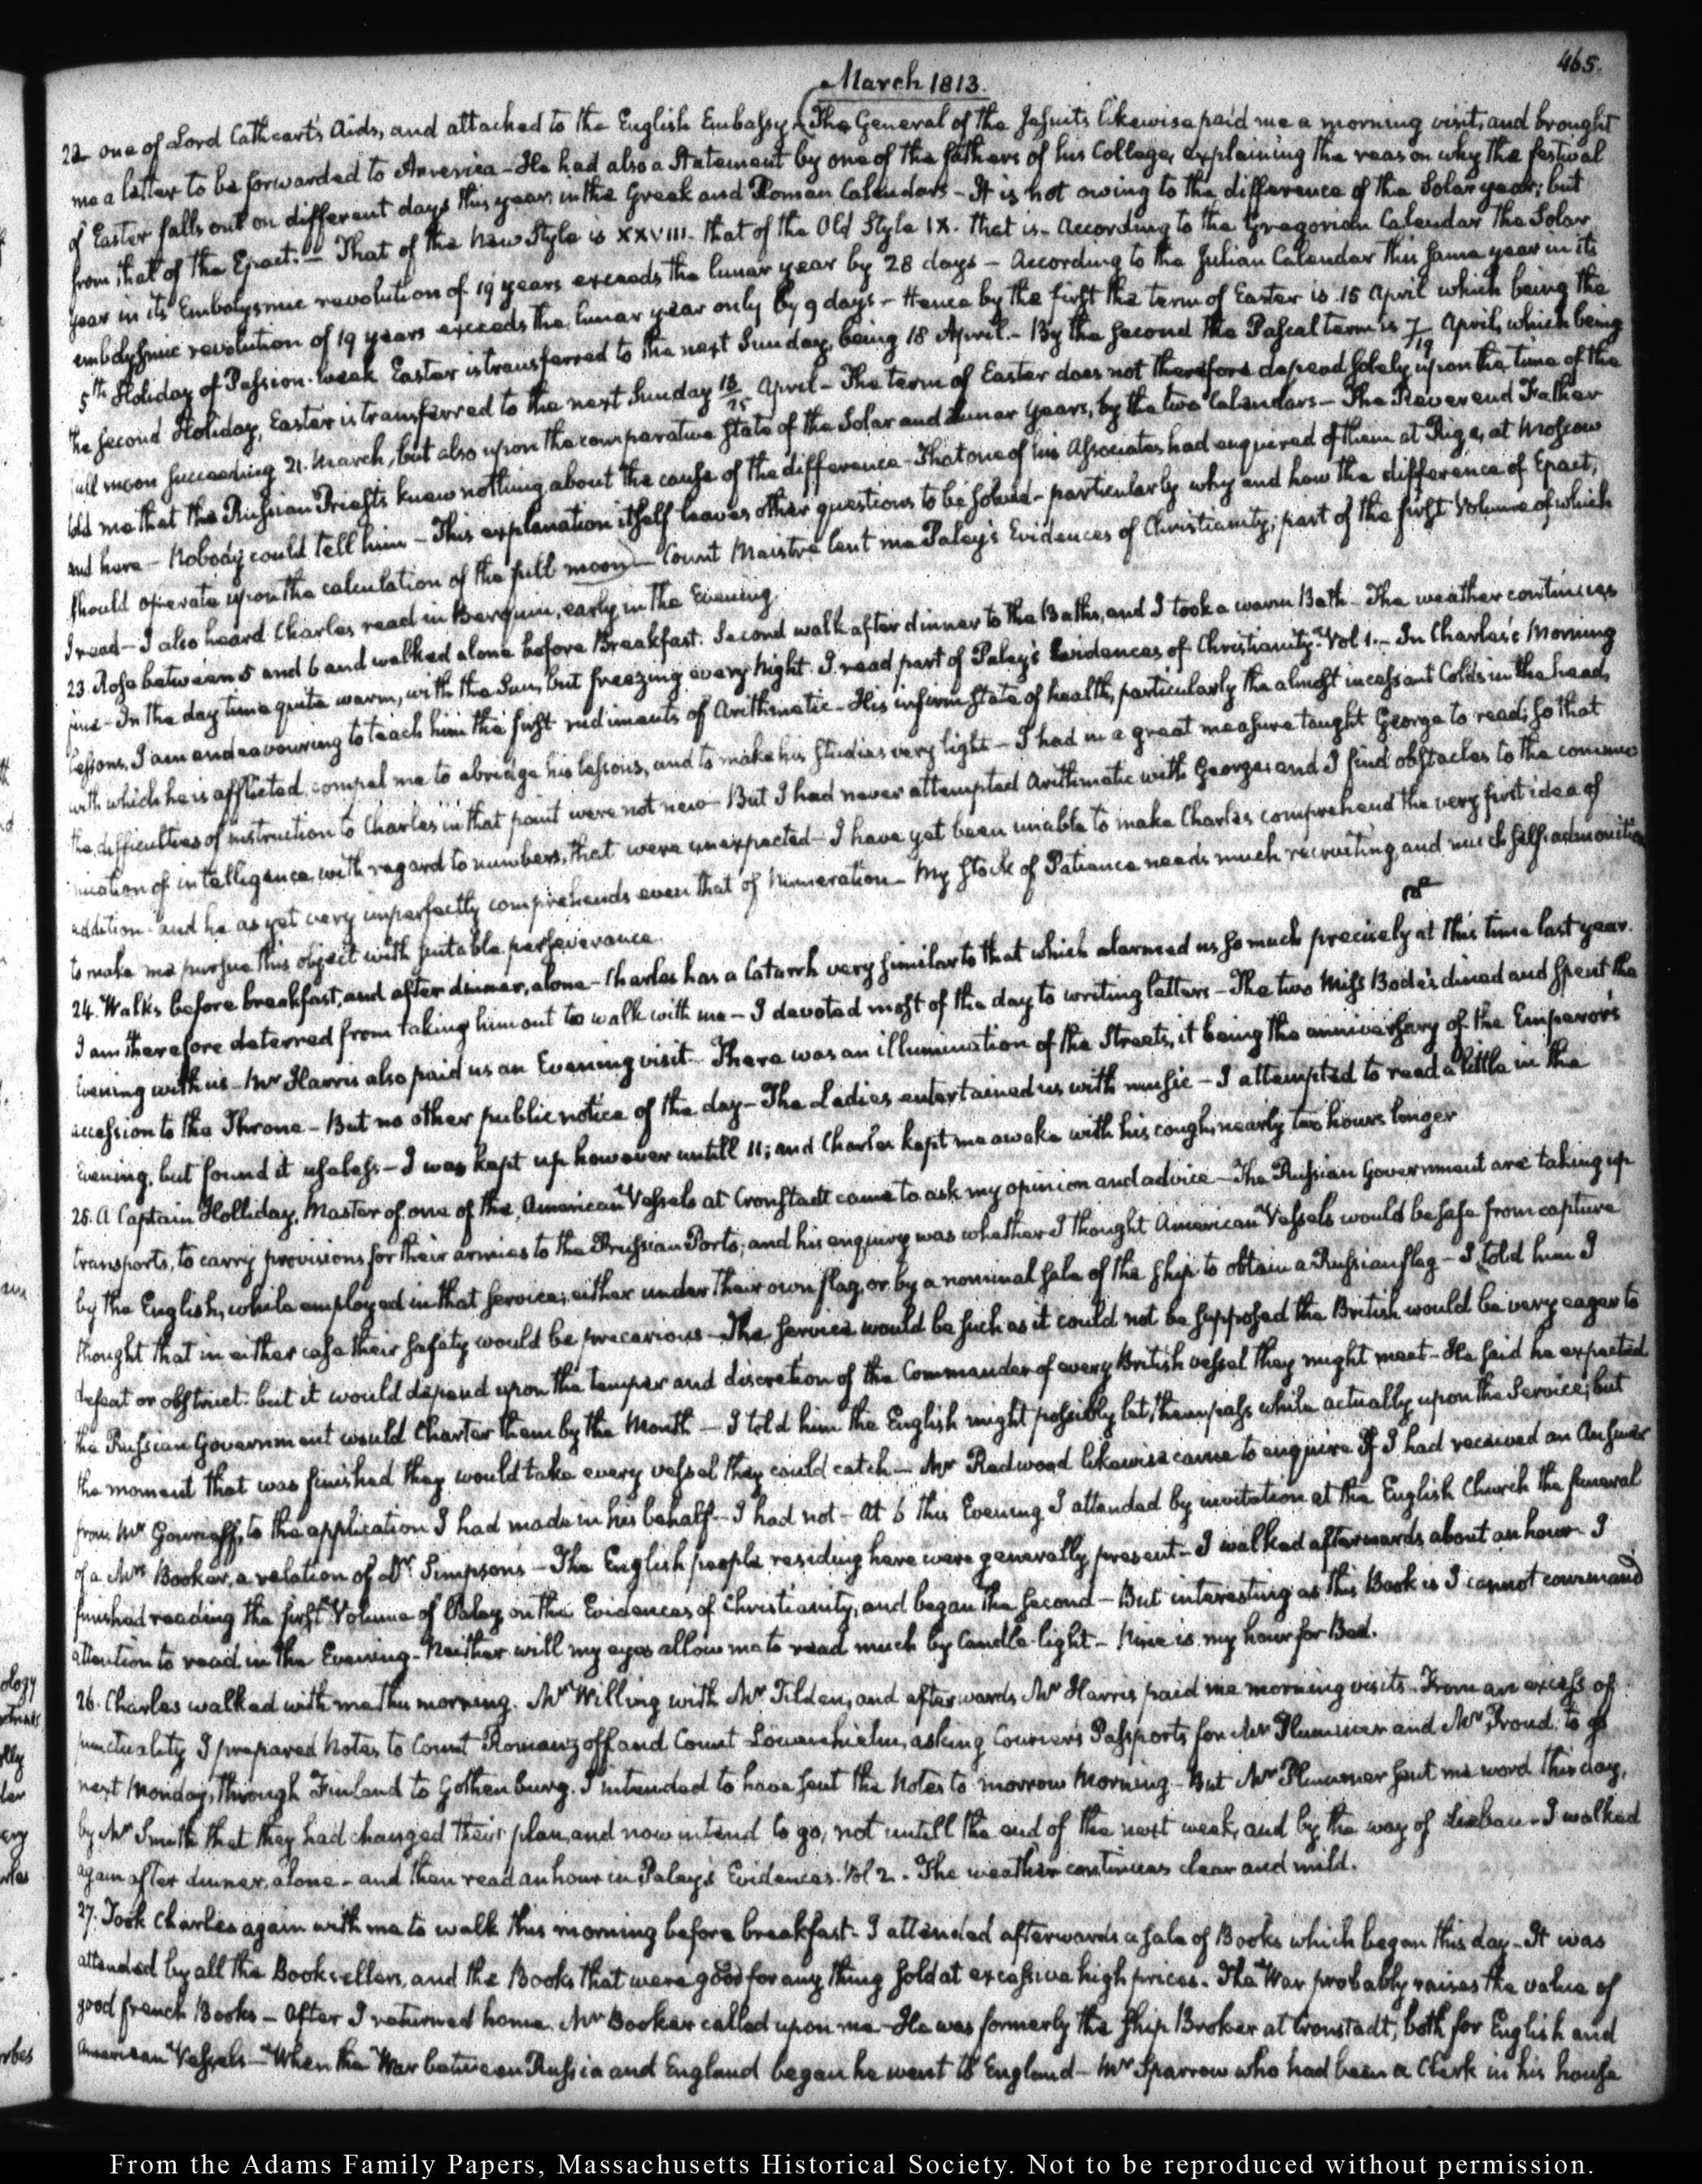 465.
March 1813.
22 one of Lord Cathcart's Aids, and attached to the English Embassy. (The General of the Jesuits likewise paid me a morning visit, and brought
me a letter to be forwarded to America - He had also a Statement by one of the fathers of his College, explaining the reason why the festival
of Easter falls out on different days this year in the Greek and Roman Calendars - It is not owing to the difference of the Solar year; but
from that of the Epact. - That of the New Style is XXVIII. that of the Old Style IX. that is - According to the Gregorian Calendar the Solar
year in its Embolysmic revolution of 19 years exceeds the lunar year by 28 days - According to the Julian Calendar this same year in its
embolysmic revolution of 19 years exceeds the lunar year only by 9 days - Hence by the first the term of Easter is 15 April which being the
5th Holiday of Passion-Week Easter is transferred to the next Sunday, being 18 April. - By the second the Pascal term is 7/19 April, which being
the second Holiday, Easter is transferred to the next Sunday 13/25 April - The term of Easter does not therefore depend solely upon the time of the
full moon succeeding 21. March, but also upon the comparative state of the Solar and Lunar Years, by the two Calendars - The Reverend Father
told me that the Russian Priests knew nothing about the cause of the difference - That one of his Associates had enquired of them at Riga, at Moscow
and here - Nobody could tell him - This explanation itself leaves other questions to be solved - particularly why and how the difference of Epact,
should operate upon the calculation of the full moon) - Count Maistre lent me Paley's Evidences of Christianity; part of the first Volume of which
I read - I also heard Charles read in Berquin, early in the Evening.
23. Rose between 5 and 6 and walked alone before Breakfast. Second walk after dinner to the Baths, and I took a warm Bath - The weather continues
fine - In the day time quite warm, with the Sun, but freezing every Night. I read part of Paley's Evidences of Christianity. Vol 1. - In Charles's Morning
lessons, I am endeavouring to teach him the first rudiments of Arithmetic - His infirm state of health, particularly the almost incessant Colds in the head,
with which he is afflicted, compel me to abridge his lessons, and to make his studies very light - I had in a great measure taught George to read; so that
the difficulties of instruction to Charles in that point were not new - But I had never attempted Arithmetic with George; and I find obstacles to the commu-
nication of intelligence, with regard to numbers, that were unexpected - I have yet been unable to make Charles comprehend the very first idea of
addition - and he as yet very imperfectly comprehends even that of Numeration - My stock of Patience needs much recruiting, and much self-admonition
to make me pursue this object with suitable perseverance.
24. Walks before breakfast, and after dinner, alone - Charles has a Catarrh very similar to that which alarmed us so much precisely at this time last year.
I am therefore deterred from taking him out to walk with me - I devoted most of the day to writing letters - The two Miss Bode's dined and spent the
Evening with us - Mr Harris also paid us an Evening visit. There was an illumination of the Streets, it being the anniversary of the Emperor's
accession to the Throne - But no other public notice of the day - The Ladies entertained us with music - I attempted to read a little in the
Evening, but found it useless - I was kept up however untill 11; and Charles kept me awake with his cough, nearly two hours longer
25. A Captain Holliday, Master of one of the American Vessels at Cronstadt came to ask my opinion and advice - The Russian Government are taking up
transports, to carry provisions for their armies to the Prussian Ports; and his enquiry was whether I thought American Vessels would be safe from capture
by the English, while employed in that service, either under their own flag, or by a nominal sale of the ship to obtain a Russian flag - I told him I
thought that in either case their safety would be precarious - The service would be such as it could not be supposed the British would be very eager to
defeat or obstruct: but it would depend upon the temper and discretion of the Commander of every British vessel they might meet - He said he expected
the Russian Government would Charter them by the Month - I told him the English might possibly let them pass while actually upon the Service; but
the moment that was finished they would take every vessel they could catch - Mr Redwood likewise came to enquire if I had received an Answer
from Mr Gourieff, to the application I had made in his behalf - I had not - At 6 this Evening I attended by invitation at the English Church the funeral
of a Mrs Booker, a relation of Dr Simpson's - The English people residing here were generally present - I walked afterwards about an hour - I
finished reading the first Volume of Paley on the Evidences of Christianity, and began the second - But interesting as this Book is I cannot command
attention to read in the Evening - Neither will my eyes allow me to read much by Candle-light - Nine is my hour for Bed.
26. Charles walked with me this morning. Mr Willing with Mr Tilden, and afterwards Mr Harris paid me morning visits. From an excess of
punctuality I prepared Notes to Count Romanzoff and Count Löwenhielm, asking Courier's Passports for Mr Plummer and Mr Proud, to go
next Monday, through Finland to Gothenburg. I intended to have sent the Notes to morrow Morning - But Mr Plummer sent me word this day,
by Mr Smith that they had changed their plan, and now intend to go, not untill the end of the next week, and by the way of Liebau - I walked
again after dinner, alone - and then read an hour in Paley's Evidences. Vol 2. - The weather continues clear and mild.
27. Took Charles again with me to walk this morning before breakfast - I attended afterwards a sale of Books which began this day - It was
attended by all the Booksellers, and the Books that were good for any thing sold at excessive high prices. The War probably raises the value of
good french Books - After I returned home, Mr Booker called upon me - He was formerly the Ship Broker at Cronstadt, both for English and
American Vessels - When the War between Russia and England began he went to England - Mr Sparrow who had been a Clerk in his house
From the Adams Family Papers, Massachusetts Historical Society. Not to be reproduced without permission.